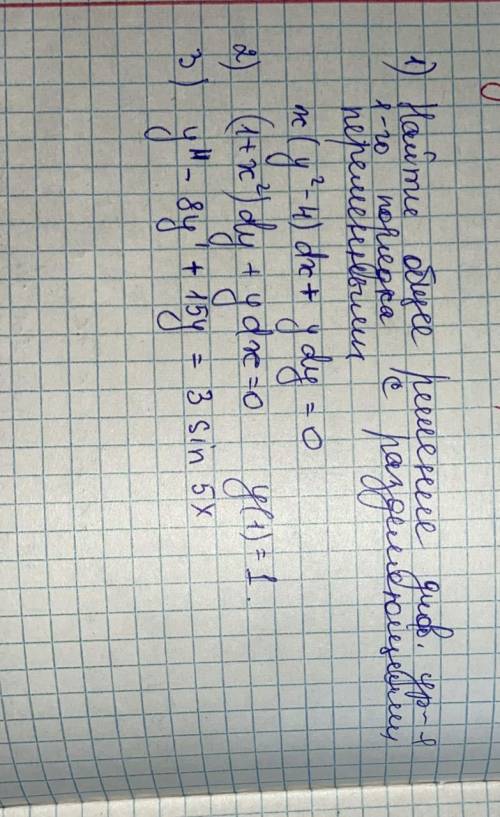 1) Найти общее решение диф. ур-я
1-го порядка с разделяющимися
переменными
x(y²-4)dx + ydy = 0
2) (1+x²)dy + ydx = 0 y(1) = 1.
3) y'' - 8y' + 15y = 3 sin 5x